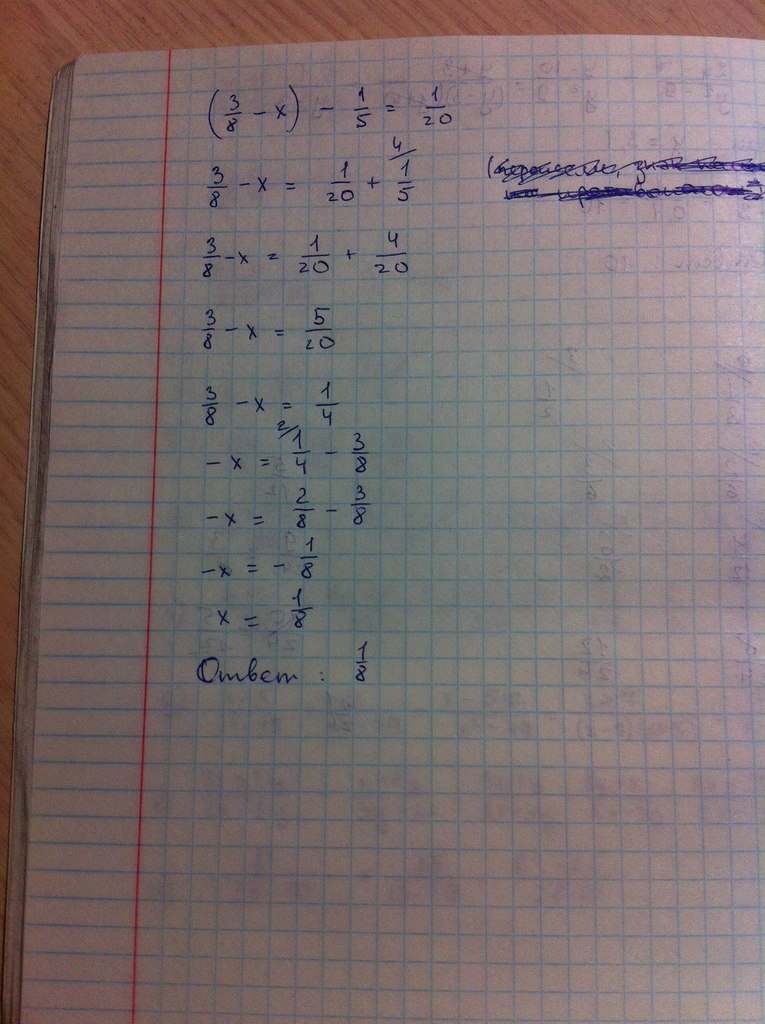 (3/8 - x) - 1/5 = 1/20
3/8 - x = 1/20 + 4/ 1/5
3/8 - x = 1/20 + 4/20
3/8 - x = 5/20
3/8 - x = 1/4
-x = 2/ 1/4 - 3/8
-x = 2/8 - 3/8
-x = - 1/8
x = 1/8
Ответ: 1/8